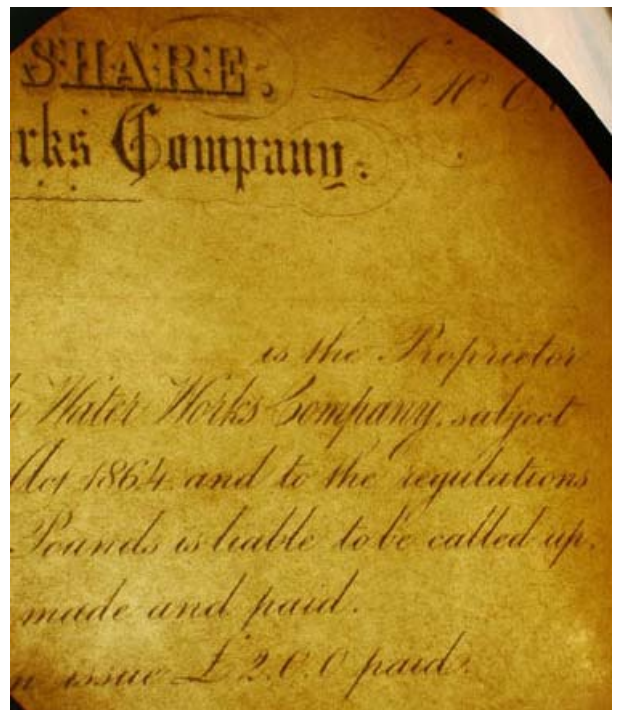 SHARE.
£10.0.
rks Company.
is the Proprietor
Water Works Company, subject
Act 1864 and to the regulations
Pounds is liable to be called up,
made and paid.
n issue £2.0.0 paid.